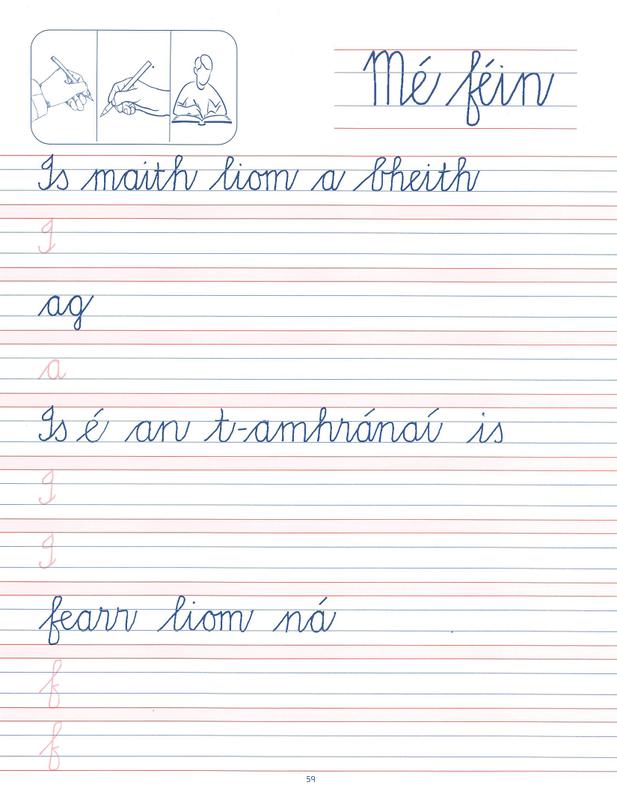 Mé féin
Is maith liom a bheith
I
ag
a
Is é an t-amhránaí is
I
I
fearr liom ná
f
f
59